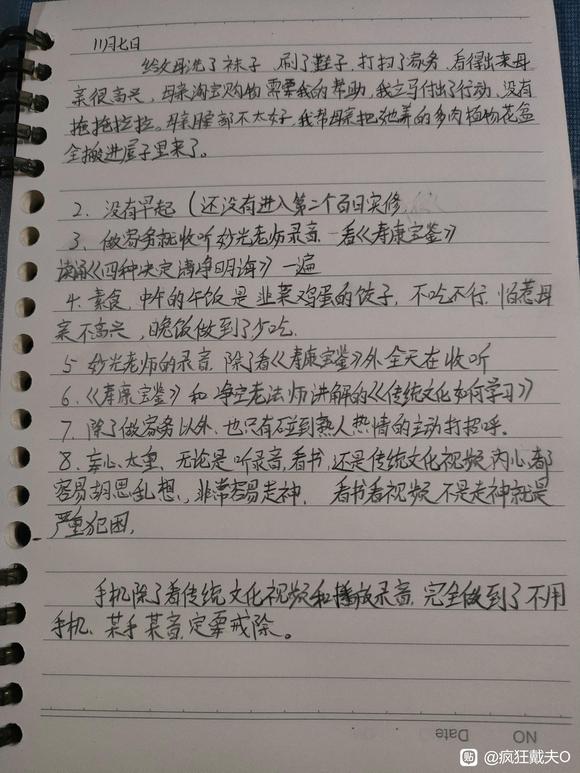 11月七日
给父母洗了袜子,刷了鞋子,打扫了家务,看得出来母
亲很高兴,母亲淘宝购物需要我的帮助,我立马付出了行动,没有
拖拖拉拉。母亲腰部不太好,我帮母亲把她养的多肉植物花盆
全搬进屋子里来了。
2、没有早起(还没有进入第二个百日实修
3、做家务就收听妙光老师录音 看《寿康宝鉴》
读诵《四种决定清净明诲》一遍
4、素食,中午的午饭是韭菜鸡蛋的饺子,不吃不行,怕惹母
亲不高兴,晚饭做到了少吃.
5 妙光老师的录音,除了看《寿康宝鉴》外全天在收听
6、《寿康宝鉴》和净空老法师讲解的《传统文化如何学习》
7、除了做家务以外,也只有碰到熟人热情的主动打招呼.
8、妄心太重,无论是听录音,看书,还是传统文化视频,内心都
容易胡思乱想,非常容易走神,看书看视频,不是走神就是
严重犯困,
手机除了看传统文化视频和播放录音,完全做到了不用
手机、某手某音,定要戒除。
NO
Date
贴 @疯狂戴夫O